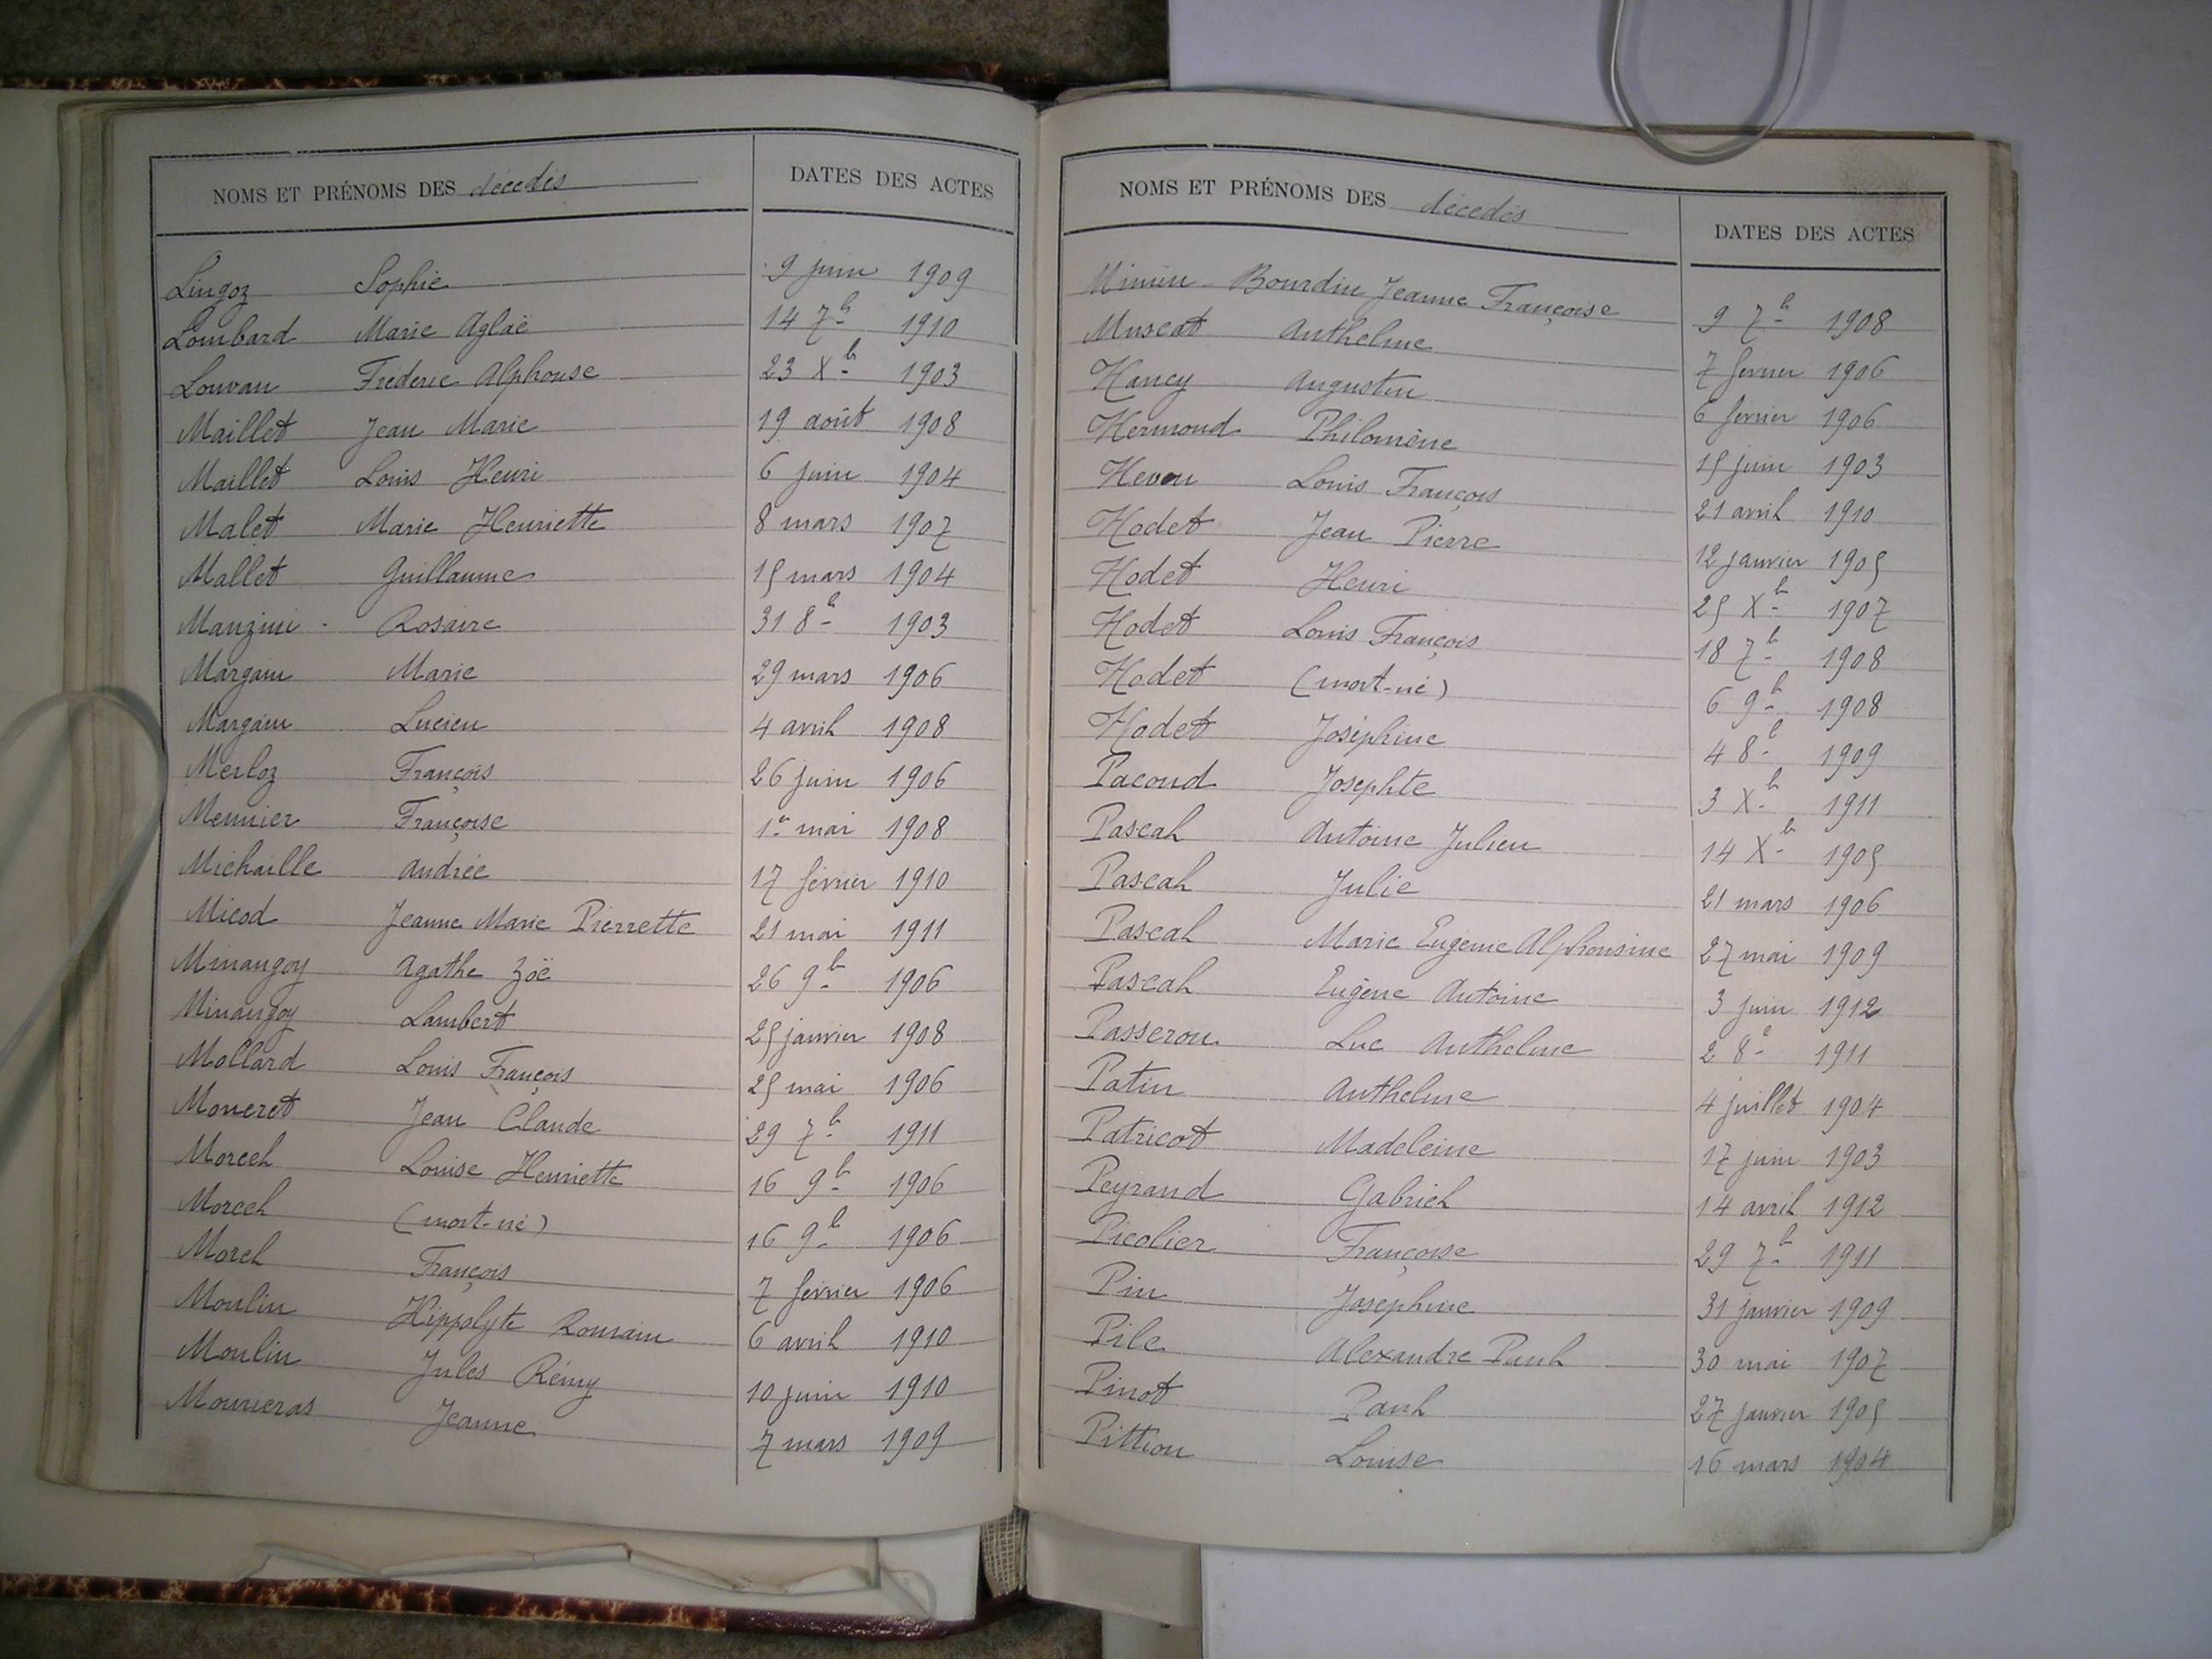 NOMS ET PRÉNOMS DES décédés DATES DES ACTES
Lingoz Sophie 9 juin 1909
Lombard Marie Aglaë 14 7b 1910
Louvan Frédéric Alphonse 23 Xb 1903
Maillet Jean Marie 19 août 1908
Maillet Louis Henri 6 juin 1904
Malet Marie Henriette 8 mars 1907
Mallet Guillaume 15 mars 1904
Manzini Rosaire 31 8b 1903
Margain Marie 29 mars 1906
Margain Lucien 4 avril 1908
Merloz François 26 juin 1906
Meunier Françoise 1er mai 1908
Michaille Andrée 17 février 1910
Micod Jeanne Marie Pierrette 21 mai 1911
Minangoy Agathe Zoë 26 9b 1906
Minangoy Lambert 25 janvier 1908
Mollard Louis François 25 mai 1906
Moneret Jean Claude 29 7b 1911
Morcel Louise Henriette 16 9b 1906
Morcel (mort-né) 16 9b 1906
Morel François 7 février 1906
Moulin Hippolyte Romain 6 avril 1910
Moulin Jules Rémy 10 juin 1910
Mounieras Jeanne 7 mars 1909
NOMS ET PRÉNOMS DES décédés DATES DES ACTES
Mimin Bourdin Jeanne Françoise 9 7b 1908
Muscat Anthelme 7 février 1906
Nancy Augustin 6 février 1906
Nermond Philomène 15 juin 1903
Nevou Louis François 21 avril 1910
Nodet Jean Pierre 12 janvier 1905
Nodet Henri 25 Xb 1907
Nodet Louis François 18 7b 1908
Nodet (mort-né) 6 9b 1908
Nodet Joséphine 4 8b 1909
Pacoud Josephte 3 Xb 1911
Pascal Antoine Julien 14 Xb 1905
Pascal Julie 21 mars 1906
Pascal Marie Eugenie Alphonsine 27 mai 1909
Pascal Eugène Antoine 3 juin 1912
Passeron Luc Anthelme 2 8b 1911
Patin Anthelme 4 juillet 1904
Patricot Madeleine 17 juin 1903
Peyrand Gabriel 14 avril 1912
Picolier Françoise 29 7b 1911
Pin Josephine 31 janvier 1909
Pile Alexandre Paul 30 mai 1907
Pinot Paul 27 janvier 1905
Pittion Louise 16 mars 1904